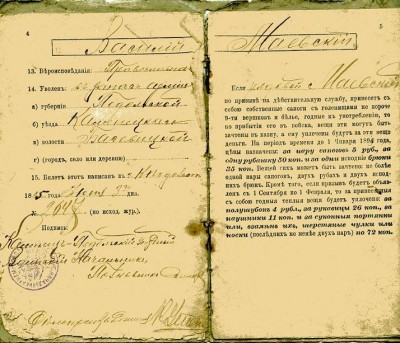 4
Василій
13. Вѣроисповѣданія: Православн
14. Уволенъ: въ запасъ арміи
а) губерніи Подольской
б) уѣзда Каменецкаго
в) волости
г) (городъ, село или деревню)
15. Билетъ этотъ написанъ въ
18 5 года дня.
№ (по исход. журн.)
Подпись:
Каменецъ-Подольскій Уѣздный
Воинскій Начальникъ,
Полковникъ
5
Маевскій
Если рядовой Маевскій
по призывѣ на дѣйствительную службу, принесетъ съ
собою собственные сапоги съ голенищами не короче
8-ти вершковъ и бѣлье, годные къ употребленію, то
по прибытіи его въ войска, вещи эти могутъ быть
зачтены въ казну, а ему уплачены будутъ за эти вещи
деньги. На періодъ времени по 1 Января 1894 года
цѣны назначены: за пару сапоговъ 5 руб., за
одну рубашку 50 коп. и за одни исподніе брюки
35 коп. Вещей сихъ можетъ быть зачтено не болѣе
одной пары сапоговъ, двухъ рубахъ и двухъ исподнихъ брюкъ. Кромѣ того, если призывъ будетъ объявленъ съ 1 Сентября по 1 Февраля, то за принесенныя
съ собою годныя теплыя вещи будетъ уплочено: за
полушубокъ 4 рубл., за рукавицы 26 коп., за
наушники 11 коп. и за суконныя портянки
или, взамѣнъ ихъ, шерстяные чулки или
носки (послѣднихъ не менѣе двухъ паръ) по 72 коп.